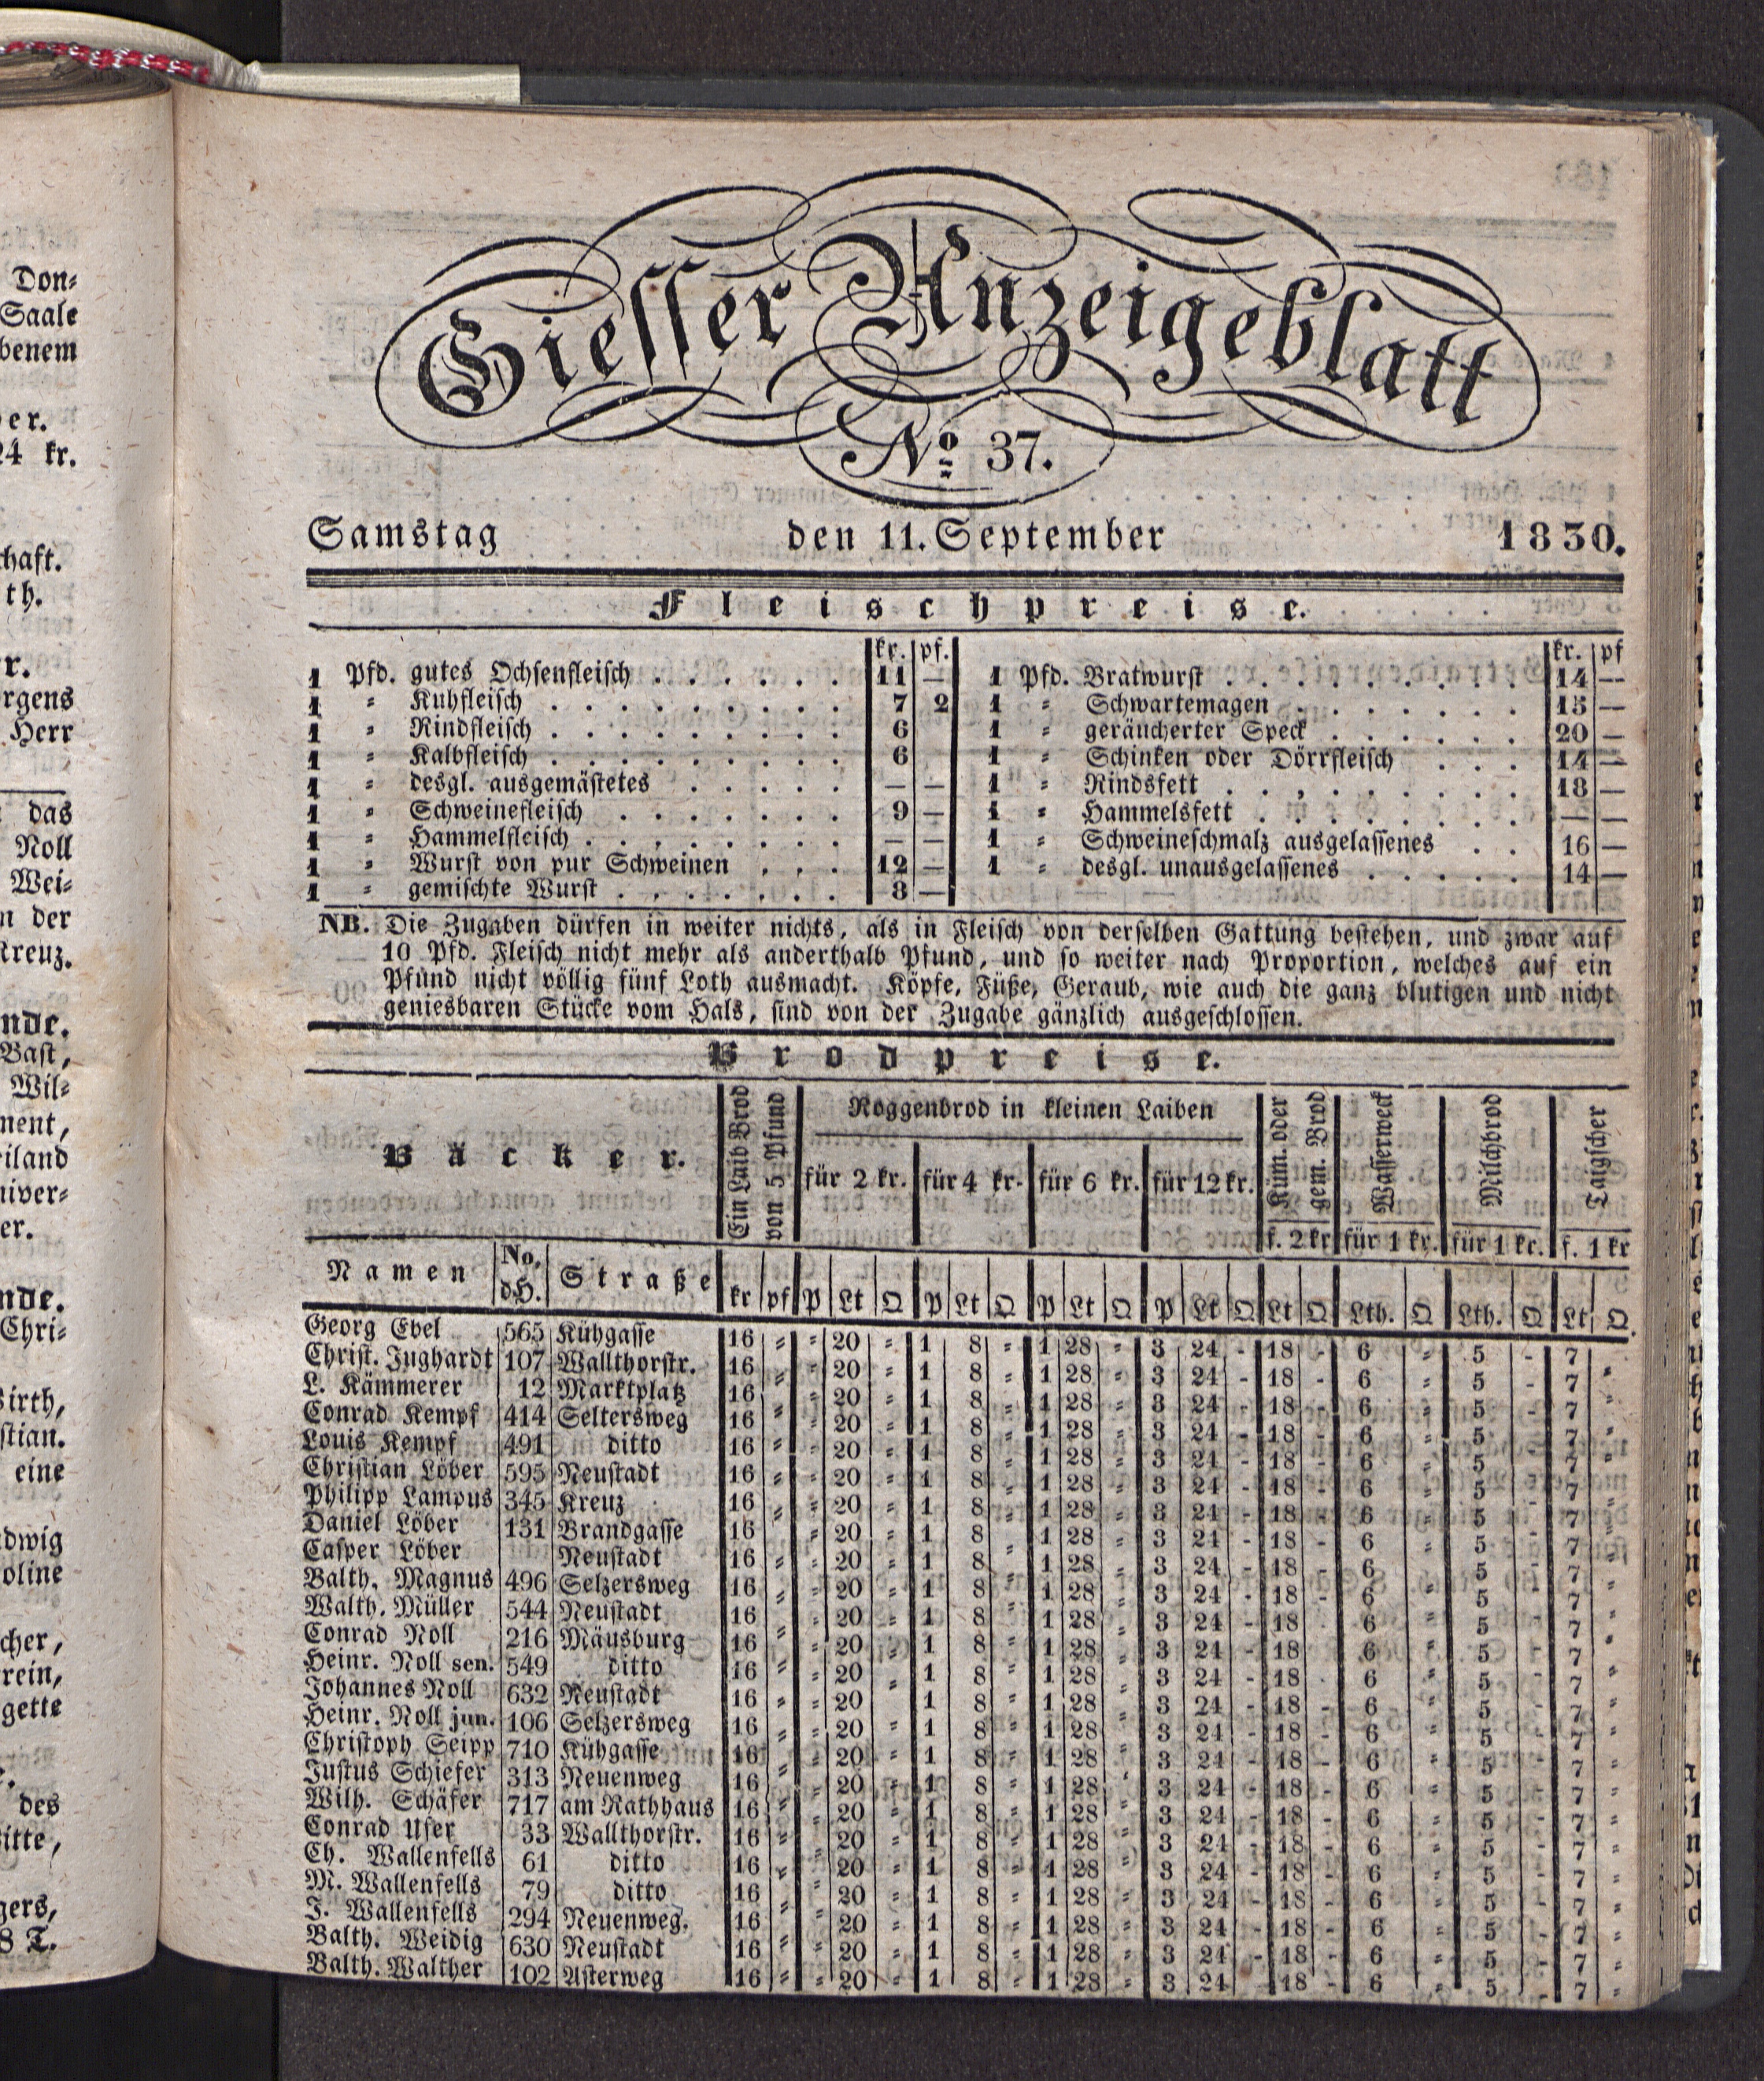 Don-
Saale
benem
er.
24 kr.
haft.
th.
r.
rgens
Herr
das
Noll
Wei-
n der
Kreuz.
nde.
Bast,
Wil-
ment,
eiland
niver-
er.
nde.
Chri-
irth,
stian.
eine
dwig
oline
cher,
rein,
gette
des
itte,
gers,
8 T.
Giesser Anzeigeblatt
No. 37.
Samstag den 11. September 1830.
Fleischpreise.
kr. pf. kr. pf
1 Pfd. gutes Ochsenfleisch . . . . . . 11 — 1 Pfd. Bratwurst . . . . . . . . . 14 —
1 " Kuhfleisch . . . . . . . . . 7 2 1 " Schwartemagen . . . . . . . 13 —
1 " Rindfleisch . . . . . . . . . 6 1 " geräucherter Speck . . . . . . 20 —
1 " Kalbfleisch . . . . . . . . . 6 1 " Schinken oder Dörrfleisch . . . 14 —
1 " desgl. ausgemästetes . . . . . — — 1 " Rindsfett . . . . . . . . . 18 —
1 " Schweinefleisch . . . . . . . 9 — 1 " Hammelsfett . . . . . . . . — —
1 " Hammelfleisch . . . . . . . . — — 1 " Schweineschmalz ausgelassenes . . 16 —
1 " Wurst von pur Schweinen . . . 12 — 1 " desgl. unausgelassenes . . . . . 14 —
1 " gemischte Wurst . . . . . . . 8 —
NB. Die Zugaben dürfen in weiter nichts, als in Fleisch von derselben Gattung bestehen, und zwar auf
10 Pfd. Fleisch nicht mehr als anderthalb Pfund, und so weiter nach Proportion, welches auf ein
Pfund nicht völlig fünf Loth ausmacht. Köpfe, Füße, Geraub, wie auch die ganz blutigen und nicht
geniesbaren Stücke vom Hals, sind von der Zugabe gänzlich ausgeschlossen.
Brodpreise.
Bäcker.
Ein Laib Brod
von 5 Pfund
Roggenbrod in kleinen Laiben
für 2 kr. für 4 kr. für 6 kr. für 12 kr.
Küm. oder
gem. Brod
f. 2 kr
Wasserweck
für 1 kr.
Milchbrod
für 1 kr.
Taigscher
f. 1 kr
Namen No. d.H. Straße kr pf P Lt Q P Lt Q P Lt Q P Lt Q Lt Q Lth. Q Lth. Q Lt. Q.
Georg Ebel 565 Kühgasse 16 " " 20 " 1 8 " 1 28 " 3 24 - 18 - 6 " 5 - 7 "
Christ. Jughardt 107 Wallthorstr. 16 " " 20 " 1 8 " 1 28 " 3 24 - 18 - 6 " 5 - 7 "
L. Kämmerer 12 Marktplatz 16 " " 20 " 1 8 " 1 28 " 3 24 - 18 - 6 " 5 - 7 "
Conrad Kempf 414 Seltersweg 16 " " 20 " 1 8 " 1 28 " 3 24 - 18 - 6 " 5 - 7 "
Louis Kempf 491 ditto 16 " " 20 " 1 8 " 1 28 " 3 24 - 18 - 6 " 5 - 7 "
Christian Löber 595 Neustadt 16 " " 20 " 1 8 " 1 28 " 3 24 - 18 - 6 " 5 - 7 "
Philipp Lampus 345 Kreuz 16 " " 20 " 1 8 " 1 28 " 3 24 - 18 - 6 " 5 - 7 "
Daniel Löber 131 Brandgasse 16 " " 20 " 1 8 " 1 28 " 3 24 - 18 - 6 " 5 - 7 "
Casper Löber Neustadt 16 " " 20 " 1 8 " 1 28 " 3 24 - 18 - 6 " 5 - 7 "
Balth. Magnus 496 Selzersweg 16 " " 20 " 1 8 " 1 28 " 3 24 - 18 - 6 " 5 - 7 "
Walth. Müller 544 Neustadt 16 " " 20 " 1 8 " 1 28 " 3 24 - 18 - 6 " 5 - 7 "
Conrad Noll 216 Mäusburg 16 " " 20 " 1 8 " 1 28 " 3 24 - 18 - 6 " 5 - 7 "
Heinr. Noll sen. 549 ditto 16 " " 20 " 1 8 " 1 28 " 3 24 - 18 - 6 " 5 - 7 "
Johannes Noll 632 Neustadt 16 " " 20 " 1 8 " 1 28 " 3 24 - 18 - 6 " 5 - 7 "
Heinr. Noll jun. 106 Selzersweg 16 " " 20 " 1 8 " 1 28 " 3 24 - 18 - 6 " 5 - 7 "
Christoph Seipp 710 Kühgasse 16 " " 20 " 1 8 " 1 28 " 3 24 - 18 - 6 " 5 - 7 "
Justus Schiefer 313 Neuenweg 16 " " 20 " 1 8 " 1 28 " 3 24 - 18 - 6 " 5 - 7 "
Wilh. Schäfer 717 am Rathhaus 16 " " 20 " 1 8 " 1 28 " 3 24 - 18 - 6 " 5 - 7 "
Conrad Ufer 33 Wallthorstr. 16 " " 20 " 1 8 " 1 28 " 3 24 - 18 - 6 " 5 - 7 "
Ch. Wallenfells 61 ditto 16 " " 20 " 1 8 " 1 28 " 3 24 - 18 - 6 " 5 - 7 "
M. Wallenfells 79 ditto 16 " " 20 " 1 8 " 1 28 " 3 24 - 18 - 6 " 5 - 7 "
J. Wallenfells 294 Neuenweg. 16 " " 20 " 1 8 " 1 28 " 3 24 - 18 - 6 " 5 - 7 "
Balth. Weidig 630 Neustadt 16 " " 20 " 1 8 " 1 28 " 3 24 - 18 - 6 " 5 - 7 "
Balth. Walther 102 Asterweg 16 " " 20 " 1 8 " 1 28 " 3 24 - 18 - 6 " 5 - 7 "